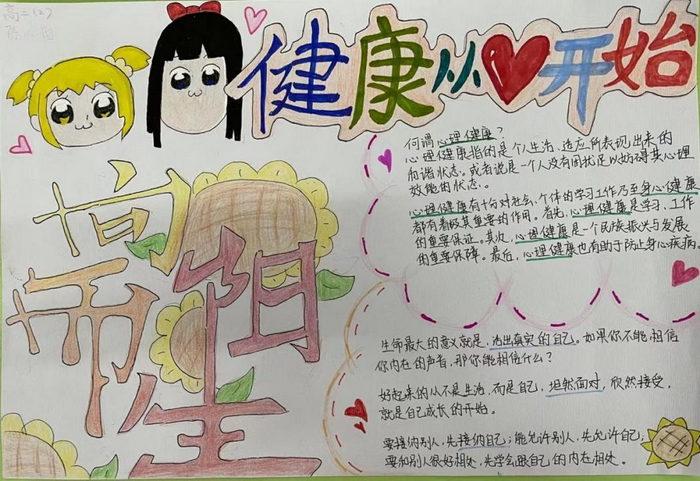 高二(2)
健康从❤开始
何谓心理健康？
心理健康指的是个人生活、适应所表现出来的
和谐状态，或者说是一个人没有困扰足以妨碍其心理
效能的状态。
心理健康有十分对社会、个体的学习工作乃至身心健康
都有着极其重要的作用。首先，心理健康是学习、工作
的重要保证。其次，心理健康是一个民族振兴与发展
的重要保障。最后，心理健康也有助于防止身心疾病。
生命最大的意义就是，活出真实的自己。如果你不能相信
你内在的声音，那你能相信什么？
好起来的从不是生活，而是自己，坦然面对，欣然接受，
就是自己成长的开始。
要接纳别人，先接纳自己；能允许别人，先允许自己；
要和别人很好相处，先学会跟自己的内在相处。
向阳
而生